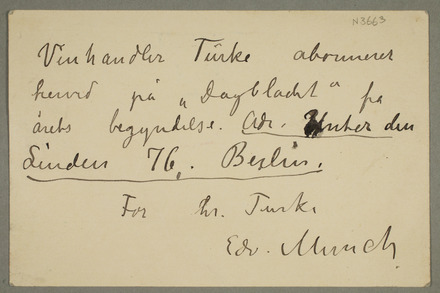 N3663
Vinhandler Türke abonnerer
herved på „Dagbladet" fra
årets begyndelse. Adr. Unter den
Linden 76. Berlin.
For Hr. Türke
Edv. Munch